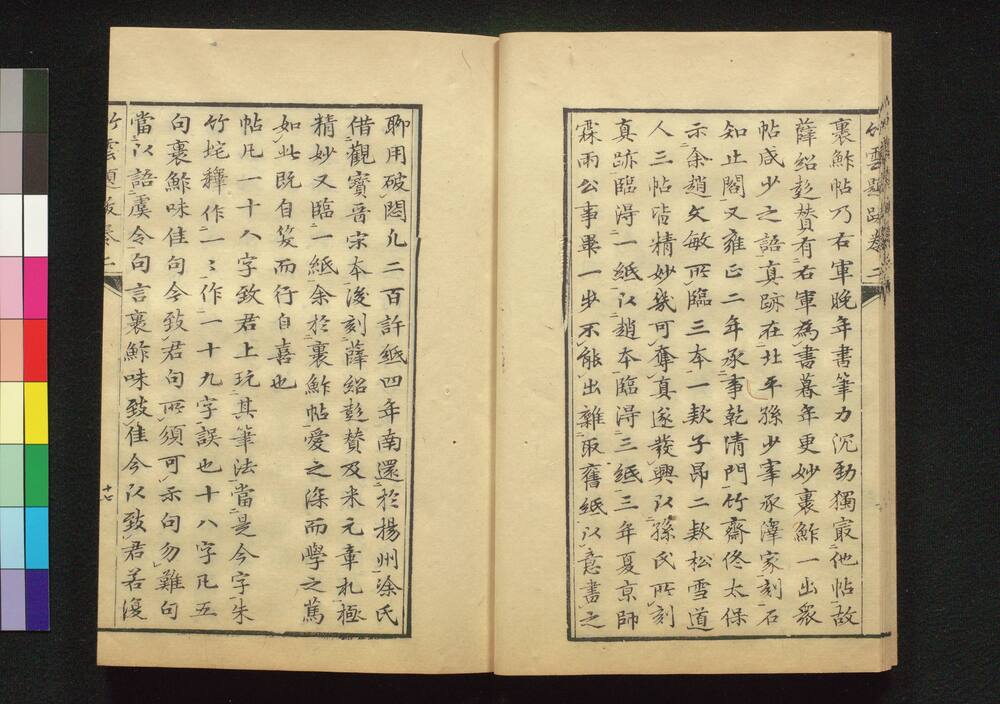 竹雲題跋卷二
裹鮓帖乃右軍晚年書筆力沉勁獨冣他帖故
薛紹彭賛有右軍為書暮年更妙裹鮓一出衆
帖咸少之語真跡在北平孫少宰承澤家刻石
知止閣又雍正二年承事乾清門竹齋佟太保
示余趙文敏所臨三本一欵子昂二欵松雪道
人三帖皆精妙幾可奪真遂發興以孫氏所刻
真跡臨得一紙以趙本臨得三紙三年夏京師
霖雨公事畢一步不能出雜取舊紙以意書之
聊用破悶凢二百許紙四年南還於楊州涂氏
借觀寶晉宋本後刻薛紹彭賛及米元章札極
精妙又臨一紙余於裹鮓帖愛之深而學之篤
如此既自笑而行自喜也
帖凢一十八字致君上玩其筆法當是今字朱
竹垞釋作一〻作一十九字誤也十八字凢五
句裹鮓味佳句今致君句所須可示句勿難句
當以語虞令句言裹鮓味致佳今以致君若復
竹雲題跋卷二
十七